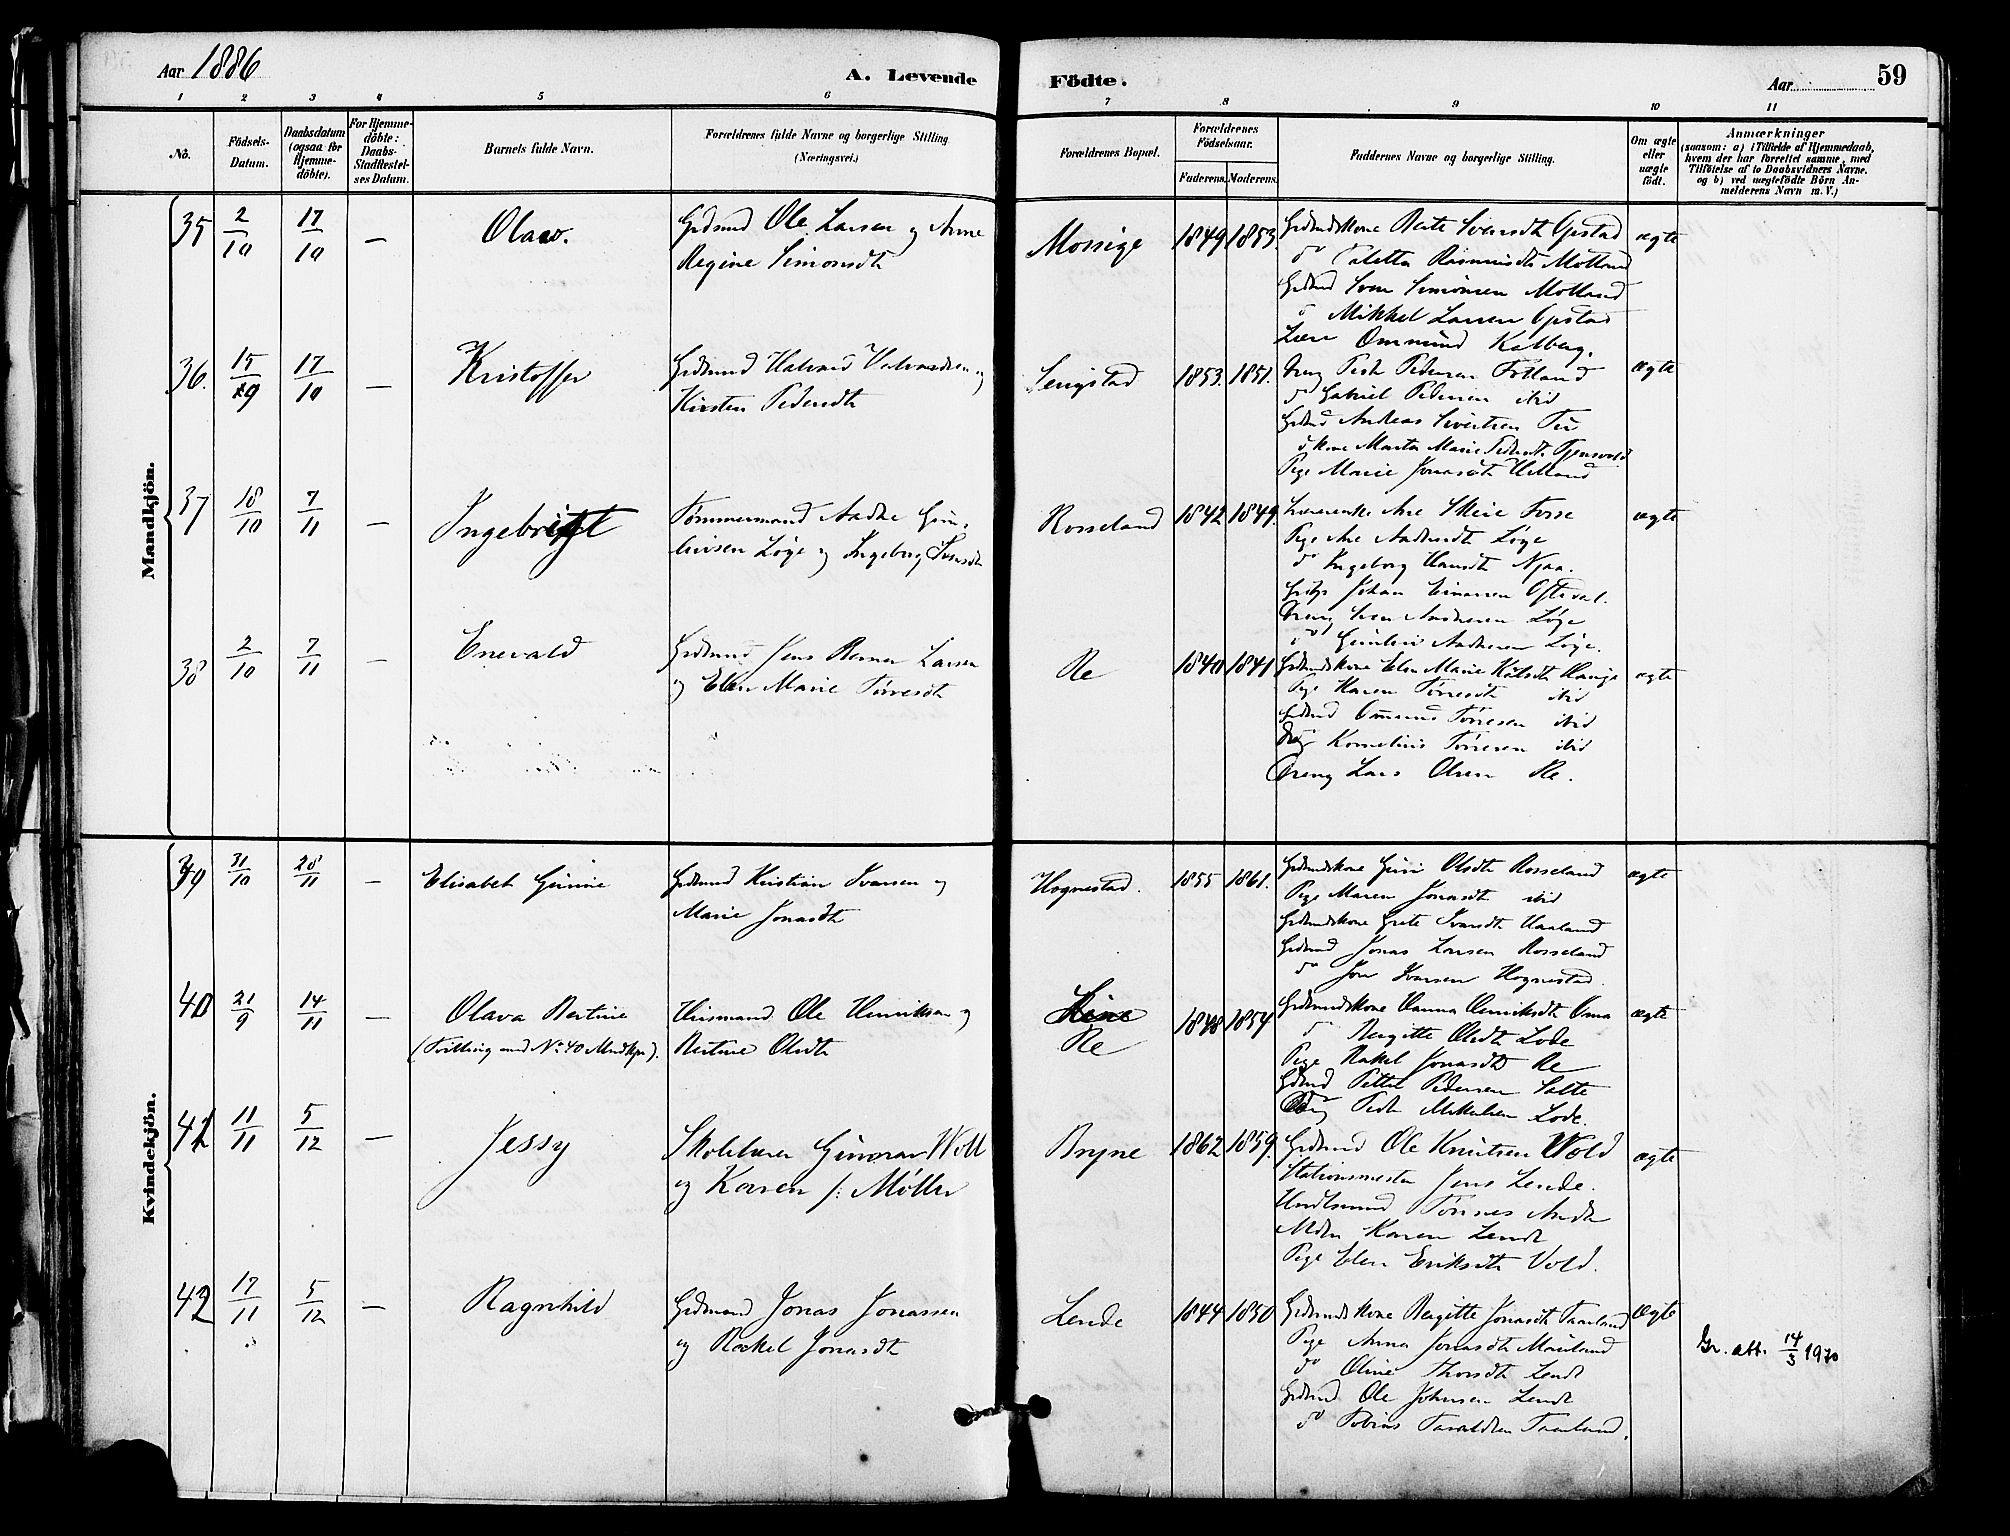 Aar 1886
A. Levende
Födte.
Aar
59
1 2 3 4 5 6 7 8 9 10 11
No.
Födsels-
Datum.
Daabsdatum
(ogsaa for
Hjemme-
döbte).
For Hjemme-
döbte:
Daabs-
Stadfæstel-
ses Datum.
Barnets fulde Navn.
Forældrenes fulde Navne og borgerlige Stilling
(Næringsvei.)
Forældrenes Bopæl.
Forældrenes
Födselsaar.
Faderens. Moderens.
Faddernes Navne og borgerlige Stilling.
Om ægte
eller
uægte
født.
Anmærkninger
(saasom: a) i Tilfælde af Hjemmedaab,
hvem der har forrettet samme, med
Tilföielse af to Daabsvidners Navne.
og b) ved uægtefödte Börn An-
melderens Navn m. V.)
Mandkjön.
35 2/10 17/10 — Olaw.
Grdmd Ole Larsen og Anne
Regine Simonsdt
Mossige 1849 1853.
Grdmdskone Berte Svensdt Opstad
do Taletta Rasmusdt Motland
Grdmd Sven Simonsen Motland
do Mikkel Larsen Opstad
Lærer Ommund Kalberg.
ægte
36. 15/9 17/10 — Kristoffer
Grdmand Halvard Halvardsen og
Kirsten Pedersdt
Serigstad 1853. 1851.
Dreng Peder Pedersen Folland
do Gabriel Pedersen ibid
Grdmd Andreas Sivertsen Tu
do kone Marta Marie Pedersdt
Pige Marie Jonasdt
ægte
37 18/10 7/11 — Ingebrigt
Tømmermand Aadne Gun-
leivsen Løge og Ingeborg Svensdt
Rosseland 1842 1849.
Ane Skeie Fosse
Pige Ane Aadnesdt Løge
do Ingeborg Hansdt Njaa.
Johan Einarsen
Dreng Sven Aadnesen Løge
do Gunleiv Aadnesen Løge.
ægte
38 2/10 7/11 — Enevald
Grdmand Jens Berner Larsen
og Elen Marie Tørresdt
Re 1840 1841
Grdmdskone Elen Marie
Pige Karen Tørresdt ibid
Grdmd Omund Tørresen ibid
Dreng Kornelius Tørresen ibid
Dreng Lars Olsen Re.
ægte
Kvindekjön.
39 31/10 28/11 — Elisabet Gurine
Grdmand Kristian Ivarsen og
Marie Jonasdt
Hognestad. 1855 1861.
Grdmdskone Guri Olsdt Rosseland
Pige Maren Jonasdt ibid
Grdmdskone Grete Ivarsdt Haaland
Grdmd Jonas Larsen Rosseland
do Jon Ivarsen Hognestad.
ægte
40 21/9 14/11 — Olava Bertine
(Tvilling med No 40 Mndkjn).
Husmand Ole Henriksen og
Bertine Olsdt
Re 1848 1854
Grdmandskone Hanna Henriksdt Oma
do Bergitte Olsdt Lode
Pige Rakel Jonasdt Re
Grdmd Pitter Pedersen Salte
Dreng Peder Mikalsen Lode.
ægte
41 11/11 5/12 — Jessy
Skolelærer Gunvar Woll
og Karen f: Møller
Bryne 1862 1859.
Grdmd Ole Knutsen Wold
Stationsmester Jens Lende.
Handlsmand Tønnes
Mdm Karen Lende
Pige Elen Eriksdt Vold.
ægte
42 17/11 5/12 — Ragnhild
Grdmand Jonas Jonassen
og Rakel Jonasdt
Lende 1844 1850
Grdmdskone Bergitte Jonasdt Taarland
Pige Anna Jonasdt
do Oline Thorsdt Lende
Grdmd Ole Johnsen Lende
do Tobias Taraldsen Taarland.
ægte
Gr. att. 14/3 1970